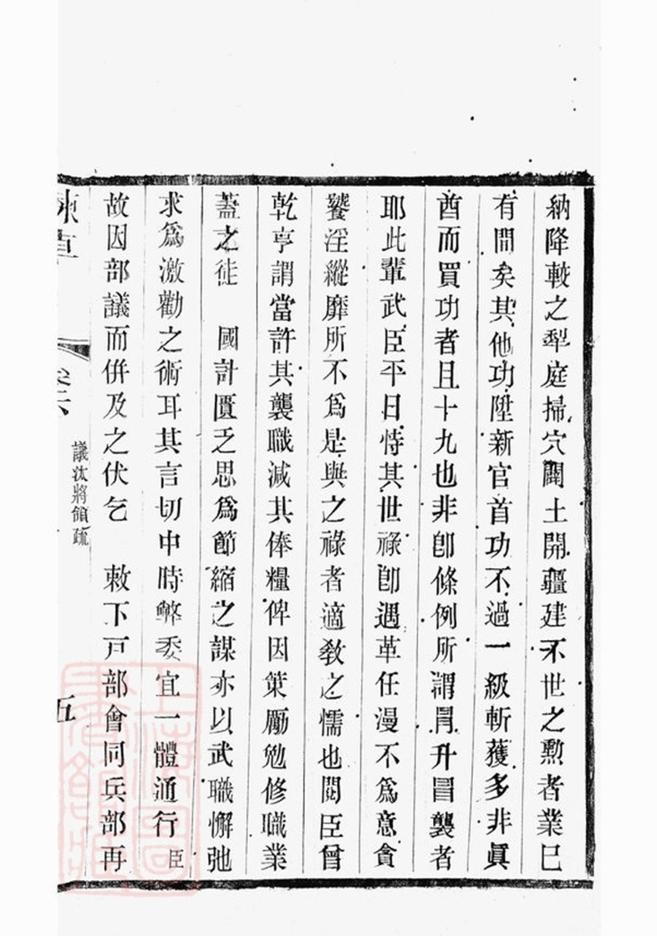 納降較之犁庭掃穴闢土開疆建不世之勲者業已
有間矣其他功陞新官首功不過一級斬獲多非眞
酋而買功者且十九也非卽條例所謂冐升冒襲者
耶此輩武臣平日恃其世祿卽遇革任漫不爲意貪
饕淫縱靡所不爲是與之祿者適敎之懦也閱臣曾
乾亨謂當許其襲職減其俸糧俾因策勵勉修職業
蓋之徒　國計匱乏思爲節縮之謀亦以武職懈弛
求爲激勸之術耳其言切中時弊委宜一體通行臣
故因部議而倂及之伏乞　敕下戸部會同兵部再
卷六
議汰將領疏
五